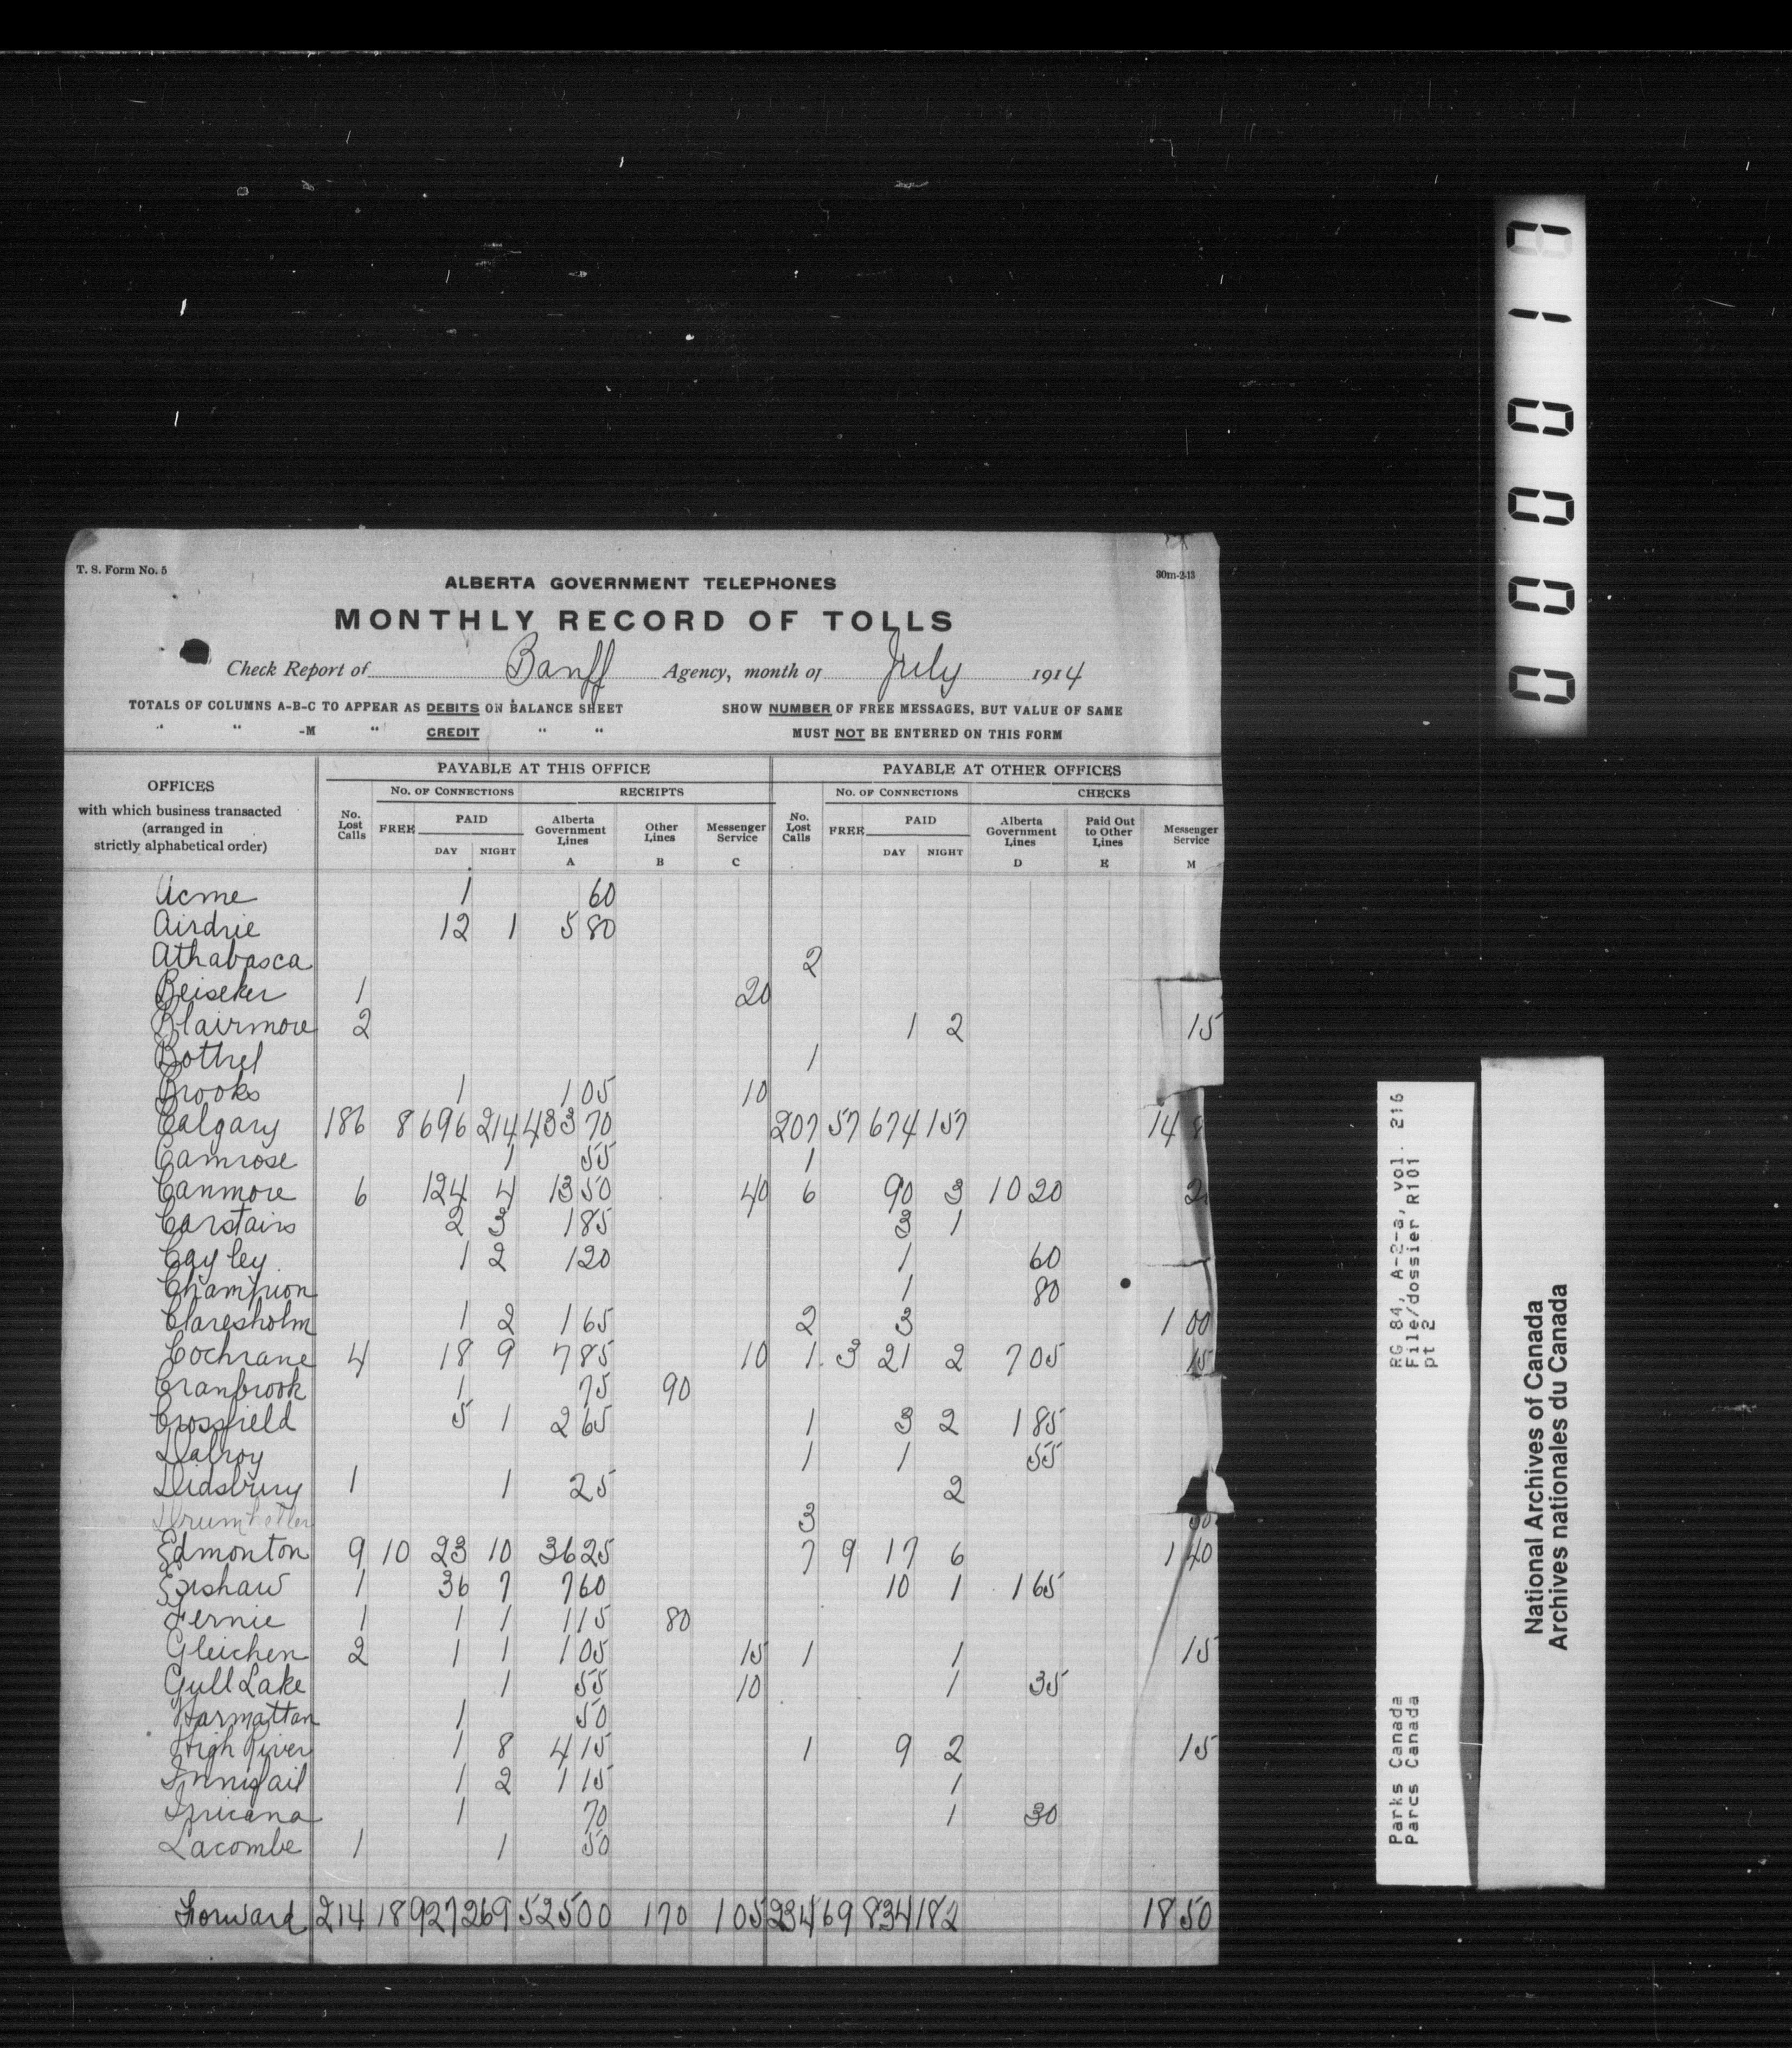 T. S. Form No. 5
30m-2-13
ALBERTA GOVERNMENT TELEPHONES
MONTHLY RECORD OF TOLLS
Check Report of Banff Agency, month of July 1914
TOTALS OF COLUMNS A-B-C TO APPEAR AS DEBITS ON BALANCE SHEET
" " -M " CREDIT " "
SHOW NUMBER OF FREE MESSAGES, BUT VALUE OF SAME
MUST NOT BE ENTERED ON THIS FORM
OFFICES
with which business transacted
(arranged in
strictly alphabetical order)
PAYABLE AT THIS OFFICE
PAYABLE AT OTHER OFFICES
No. OF CONNECTIONS RECEIPTS No. OF CONNECTIONS CHECKS
No. Lost Calls FREE PAID DAY NIGHT Alberta Government Lines A Other Lines B Messenger Service C
No. Lost Calls FREE PAID DAY NIGHT Alberta Government Lines D Paid Out to Other Lines E Messenger Service M
Acme 1 60
Airdrie 12 1 5 80
Athabasca 2
Beiseker 1 20
Blairmore 2 1 2 15
Bottrel 1
Brooks 1 1 05 10
Calgary 186 8 696 214 433 70 207 57 674 157 14
Camrose 1 55 1
Canmore 6 124 4 13 50 40 6 90 3 10 20
Carstairs 2 3 1 85 3 1
Cayley 1 2 1 20 1 60
Champion 1 80
Claresholm 1 2 1 65 2 3 1 00
Cochrane 4 18 9 7 85 10 1 3 21 2 7 05 15
Cranbrook 1 75 90
Crossfield 5 1 2 65 1 3 2 1 85
Dalroy 1 1 55
Didsbury 1 1 25 2
Drumheller 3
Edmonton 9 10 23 10 36 25 7 9 17 6 1 40
Exshaw 1 36 7 7 60 10 1 1 65
Fernie 1 1 1 1 15 80
Gleichen 2 1 1 1 05 15 1 1 15
Gull Lake 1 55 10 1 35
Harmattan 1 50
High River 1 8 4 15 1 9 2 15
Innisfail 1 2 1 15 1
Iricana 1 70 1 30
Lacombe 1 1 50
Forward 214 18 927 269 525 00 1 70 1 05 234 69 834 182 18 50
000010
RG 84, A-2-a, vol. 216
File/dossier R101
pt 2
Parks Canada
Parcs Canada
National Archives of Canada
Archives nationales du Canada